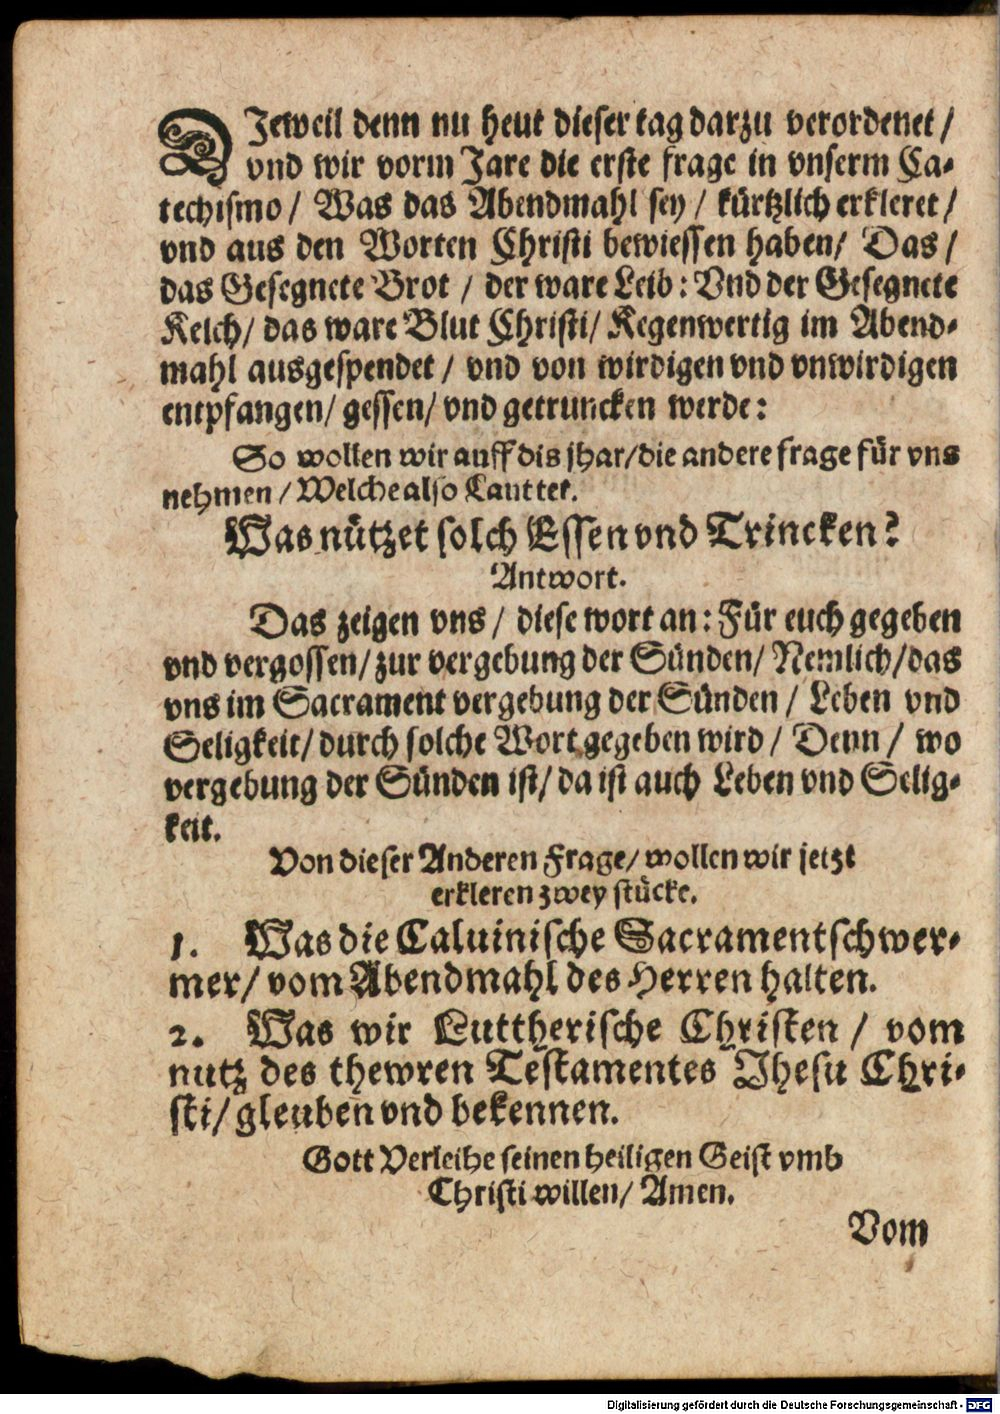 DJeweil denn nu heut dieser tag darzu verordenet /
vnd wir vorm Jare die erste frage in vnserm Ca-
techismo / Was das Abendmahl sey / kürtzlich erkleret /
vnd aus den Worten Christi bewiessen haben / Das /
das Gesegnete Brot / der ware Leib : Vnd der Gesegnete
Kelch / das ware Blut Christi / Kegenwertig im Abend-
mahl ausgespendet / vnd von wirdigen vnd vnwirdigen
entpfangen / gessen / vnd getruncken werde :
So wollen wir auff dis jhar / die andere frage für vns
nehmen / Welche also Lauttet.
Was nützet solch Essen vnd Trincken?
Antwort.
Das zeigen vns / diese wort an : Für euch gegeben
vnd vergossen / zur vergebung der Sünden / Nemlich / das
vns im Sacrament vergebung der Sünden / Leben vnd
Seligkeit / durch solche Wort gegeben wird / Denn / wo
vergebung der Sünden ist / da ist auch Leben vnd Selig-
keit.
Von dieser Anderen Frage / wollen wir jetzt
erkleren zwey stücke.
1. Was die Caluinische Sacramentschwer-
mer / vom Abendmahl des Herren halten.
2. Was wir Luttherische Christen / vom
nutz des thewren Testamentes Jhesu Chri-
sti / gleuben vnd bekennen.
Gott Verleihe seinen heiligen Geist vmb
Christi willen / Amen.
Vom
Digitalisierung gefördert durch die Deutsche Forschungsgemeinschaft - DFG